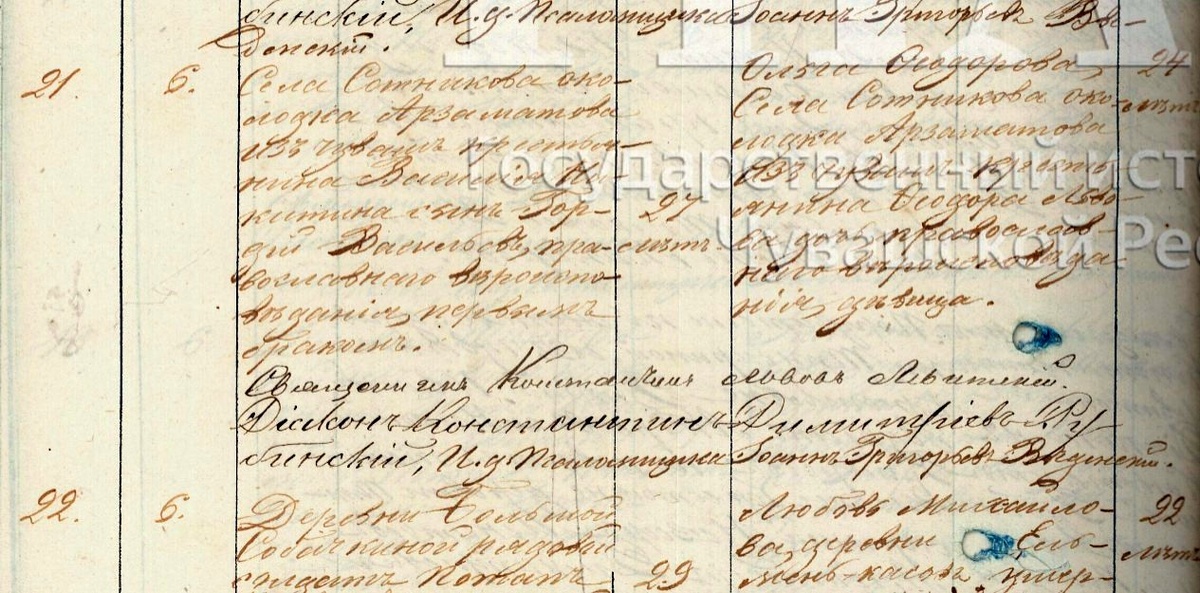 бинскій, И. д. Псаломщика Іоаннъ Григорьевъ Вве-
денскій.
21. 6. Села Сотникова око-
лодка Арзаматова
изъ чувашъ крестья-
нина Василія Ни-
китина сынъ Гор-
дій Васильевъ, пра-
вославнаго вѣроиспо-
вѣданія, первымъ
бракомъ.
27
лѣтъ
Ольга Ѳеодорова,
Села Сотникова око-
лодка Арзаматова
изъ чувашъ кресть
янина Ѳеодора Льво-
ва дочь православ-
наго вѣроисповѣда
нія, дѣвица.
24
лѣтъ
Священникъ Константинъ Львовъ
Діаконъ Константинъ Димитріевъ Ру
бинскій, И. д. Псаломщика Іоаннъ Григорьевъ Введенскій.
22. 6. Деревни Большой
Собачкиной рядовой
солдатъ Потапъ
29
Любовь Михайло-
ва, деревни Ель-
мень-касовъ умер-
22
лѣтъ
Государственный исто
Чувашской Рес